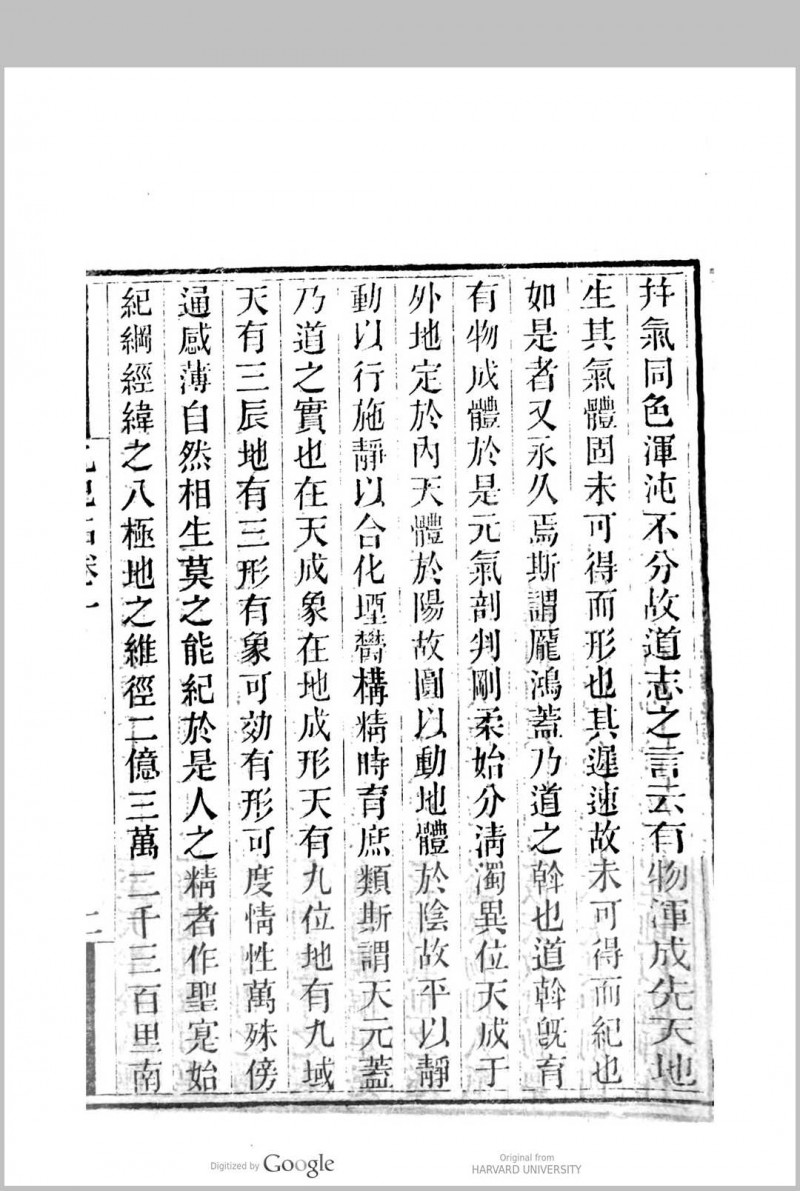 幷氣同色渾沌不分故道志之言云有物渾成先天地
生其氣體固未可得而形也其遲速故未可得而紀也
如是者又永久焉斯謂龐鴻蓋乃道之幹也道幹旣育
有物成體於是元氣剖判剛柔始分淸濁異位天成于
外地定於內天體於陽故圓以動地體於陰故平以靜
動以行施靜以合化堙鬱構精時育庶類斯謂天元蓋
乃道之實也在天成象在地成形天有九位地有九域
天有三辰地有三形有象可効有形可度情性萬殊傍
通感薄自然相生莫之能紀於是人之精者作聖寔始
紀綱經緯之八極地之維徑二億三萬二千三百里南
卷一
二
Digitized by Google
Original from
HARVARD UNIVERSITY